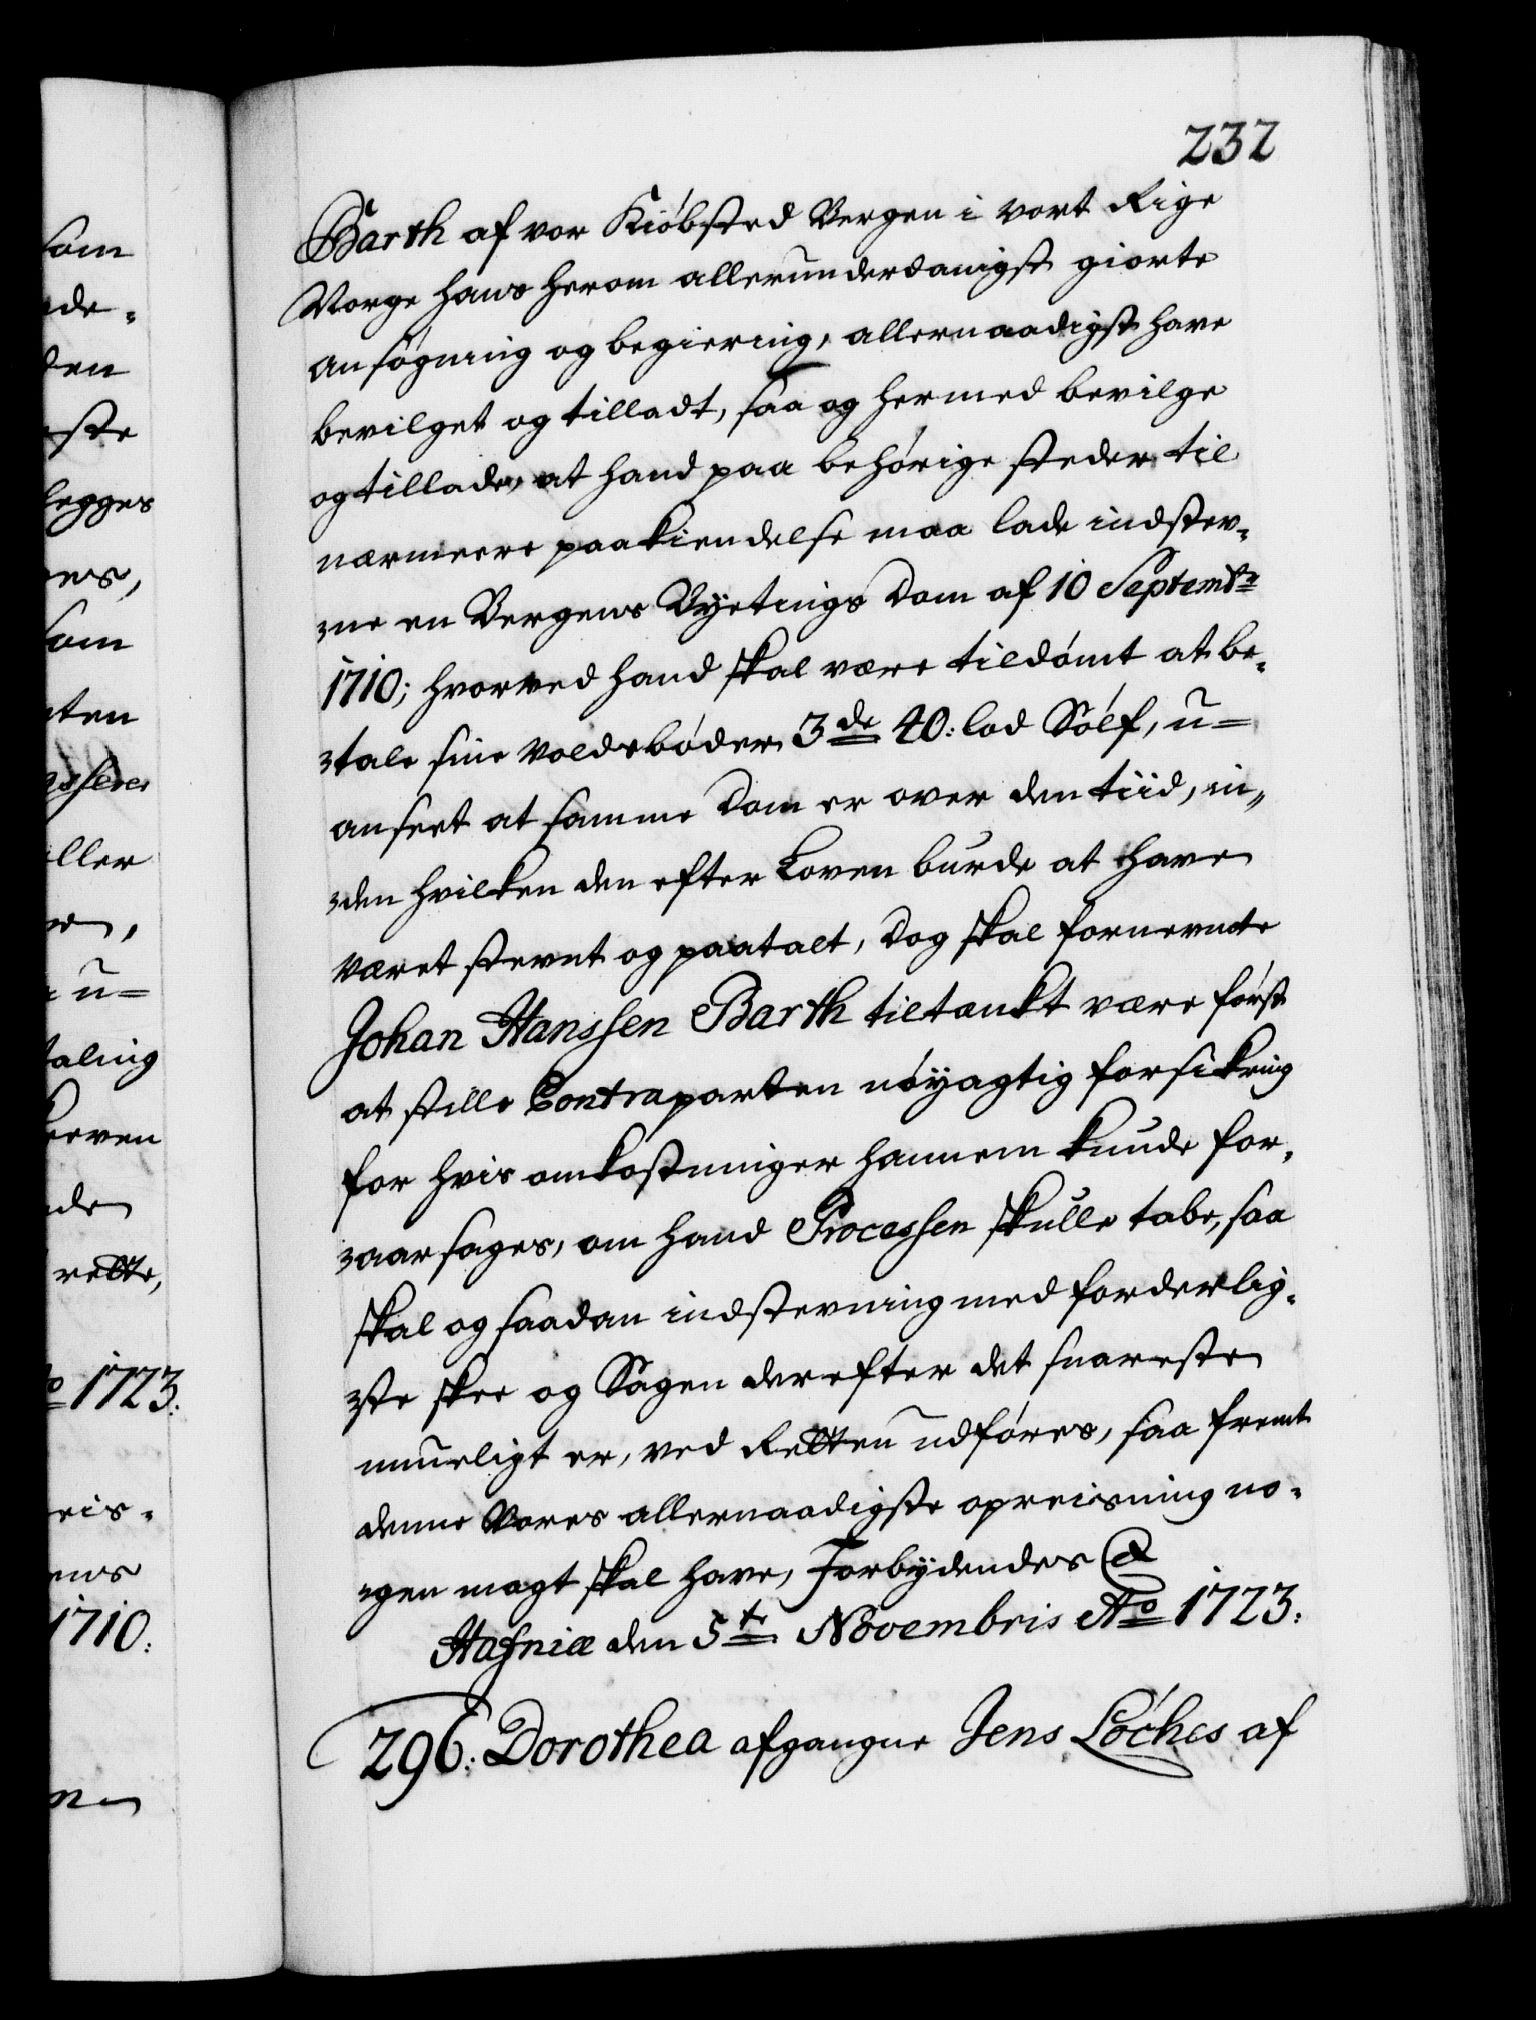 232
Barth af vor Kiöbsted Bergen i vort Rige
Norge hans herom allerunderdanigst giorte
ansögning og begiering, allernaadigst have
bevilget og tilladt, saa og hermed bevilge
og tillade, at hand paa behörige steder til
nærmeere paakiendelse maa lade indstev-
ne en Bergens Byetings Dom af 10 Septembr
1710; hvorved hand skal være tildömt at be-
tale sine voldsböder 3de 40: lod Sölf, u=
anseet at samme Dom er over den tiid, in-
den hvilken den efter Loven burde at have
været stevnt og paatalt, dog skal fornevnte
Johan Hanssen Barth tiltænkt være först
at stille Contraparten nöyagtig forsikring
for hvis omkostninger hannem kunde for-
aarsages, om hand Processen skulle tabe, saa
skal og saadan indstevning med forderlig-
ste skee og Sagen derefter det snareste
mueligt er, ved Retten udföres, saa fremt
denne Vores allernaadigste opreisning no-
gen magt skal have, Forbydendes &
Hafniæ den 5te Novembris Ao 1723:
296: Dorothea afgangne Jens Löches af
som
de-
den
ste
legges
som
ller
u=
taling
rette,
o 1723:
eis-
ens
1710: